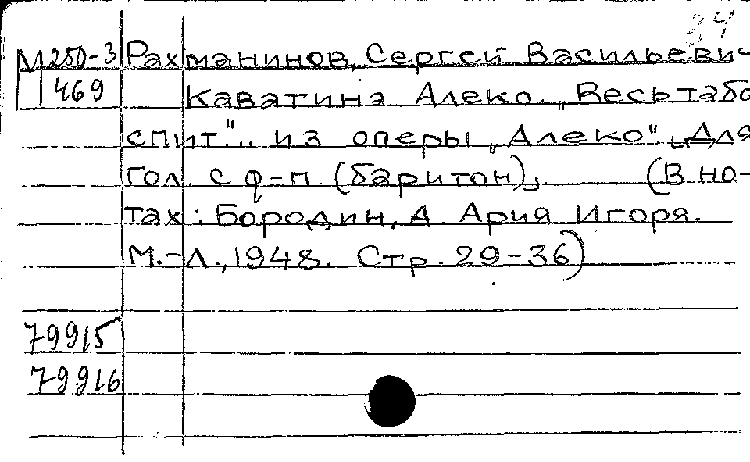 34
М250-3 Рахманинов, Сергей Васильевич
469 Каватина Алеко „Весь табо
спит".. из оперы „Алеко" „Для
гол. с ф-п (баритон), (В но-
тах: Бородин, А. Ария Игоря.
М.-Л., 1948. Стр. 29-36)
79915
79916